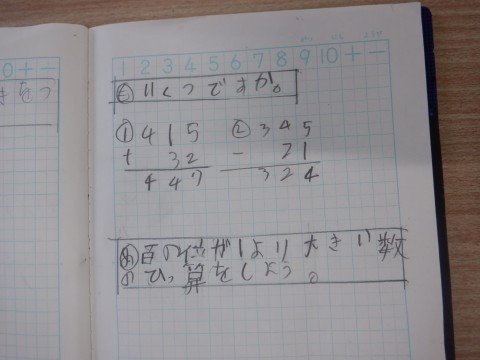 0 + −
きをつ
1 2 3 4 5 6 7 8 9 10 + −
も いくつですか。
① 415 ② 345
+ 32 − 21
447 324
め 百の位が1より大きい数
のひっ算をしよう。